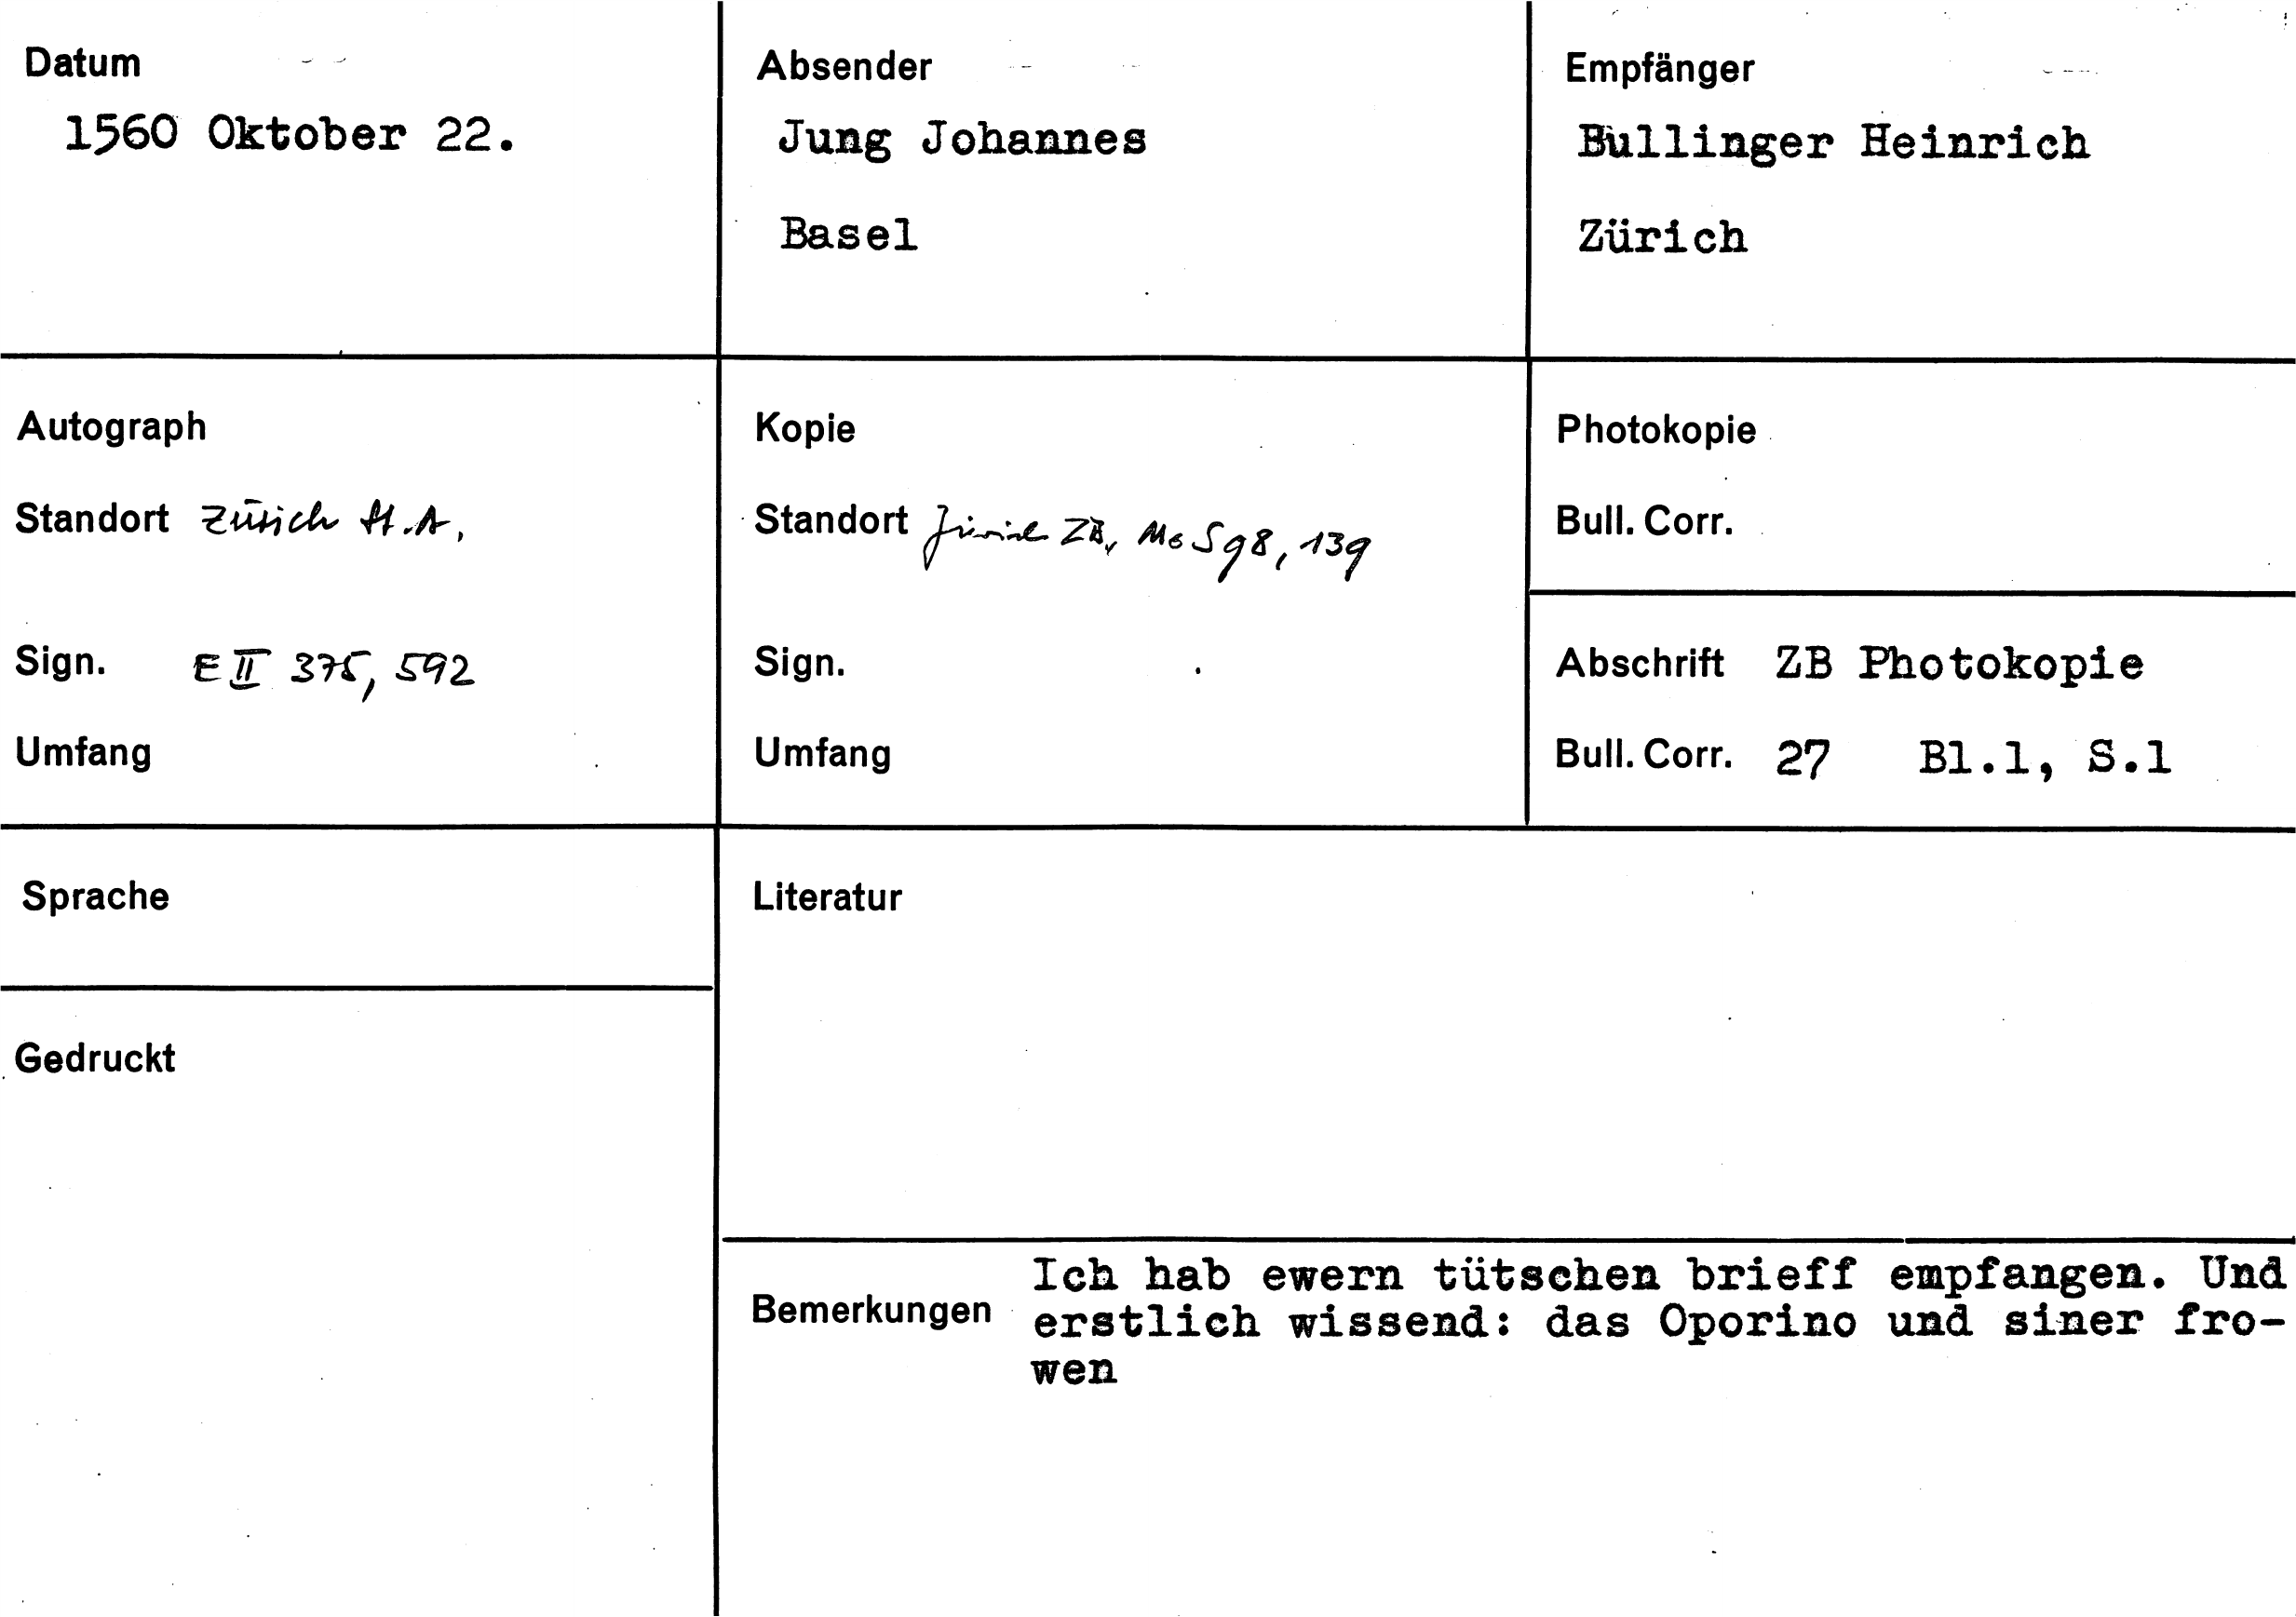 Datum
1560 Oktober 22.
Absender
Jung Johannes
Basel
Empfänger
Bullinger Heinrich
Zürich
Autograph
Standort Zürich St.A.
Sign. E II 375, 592
Umfang
Kopie
Standort Zürich ZB, Ms S 98, 139
Sign.
Umfang
Photokopie
Bull. Corr.
Abschrift ZB Photokopie
Bull. Corr. 27 Bl.1, S.1
Sprache
Gedruckt
Literatur
Bemerkungen
Ich hab ewern tütschen brieff empfangen. Und
erstlich wissend: das Oporino und siner fro-
wen